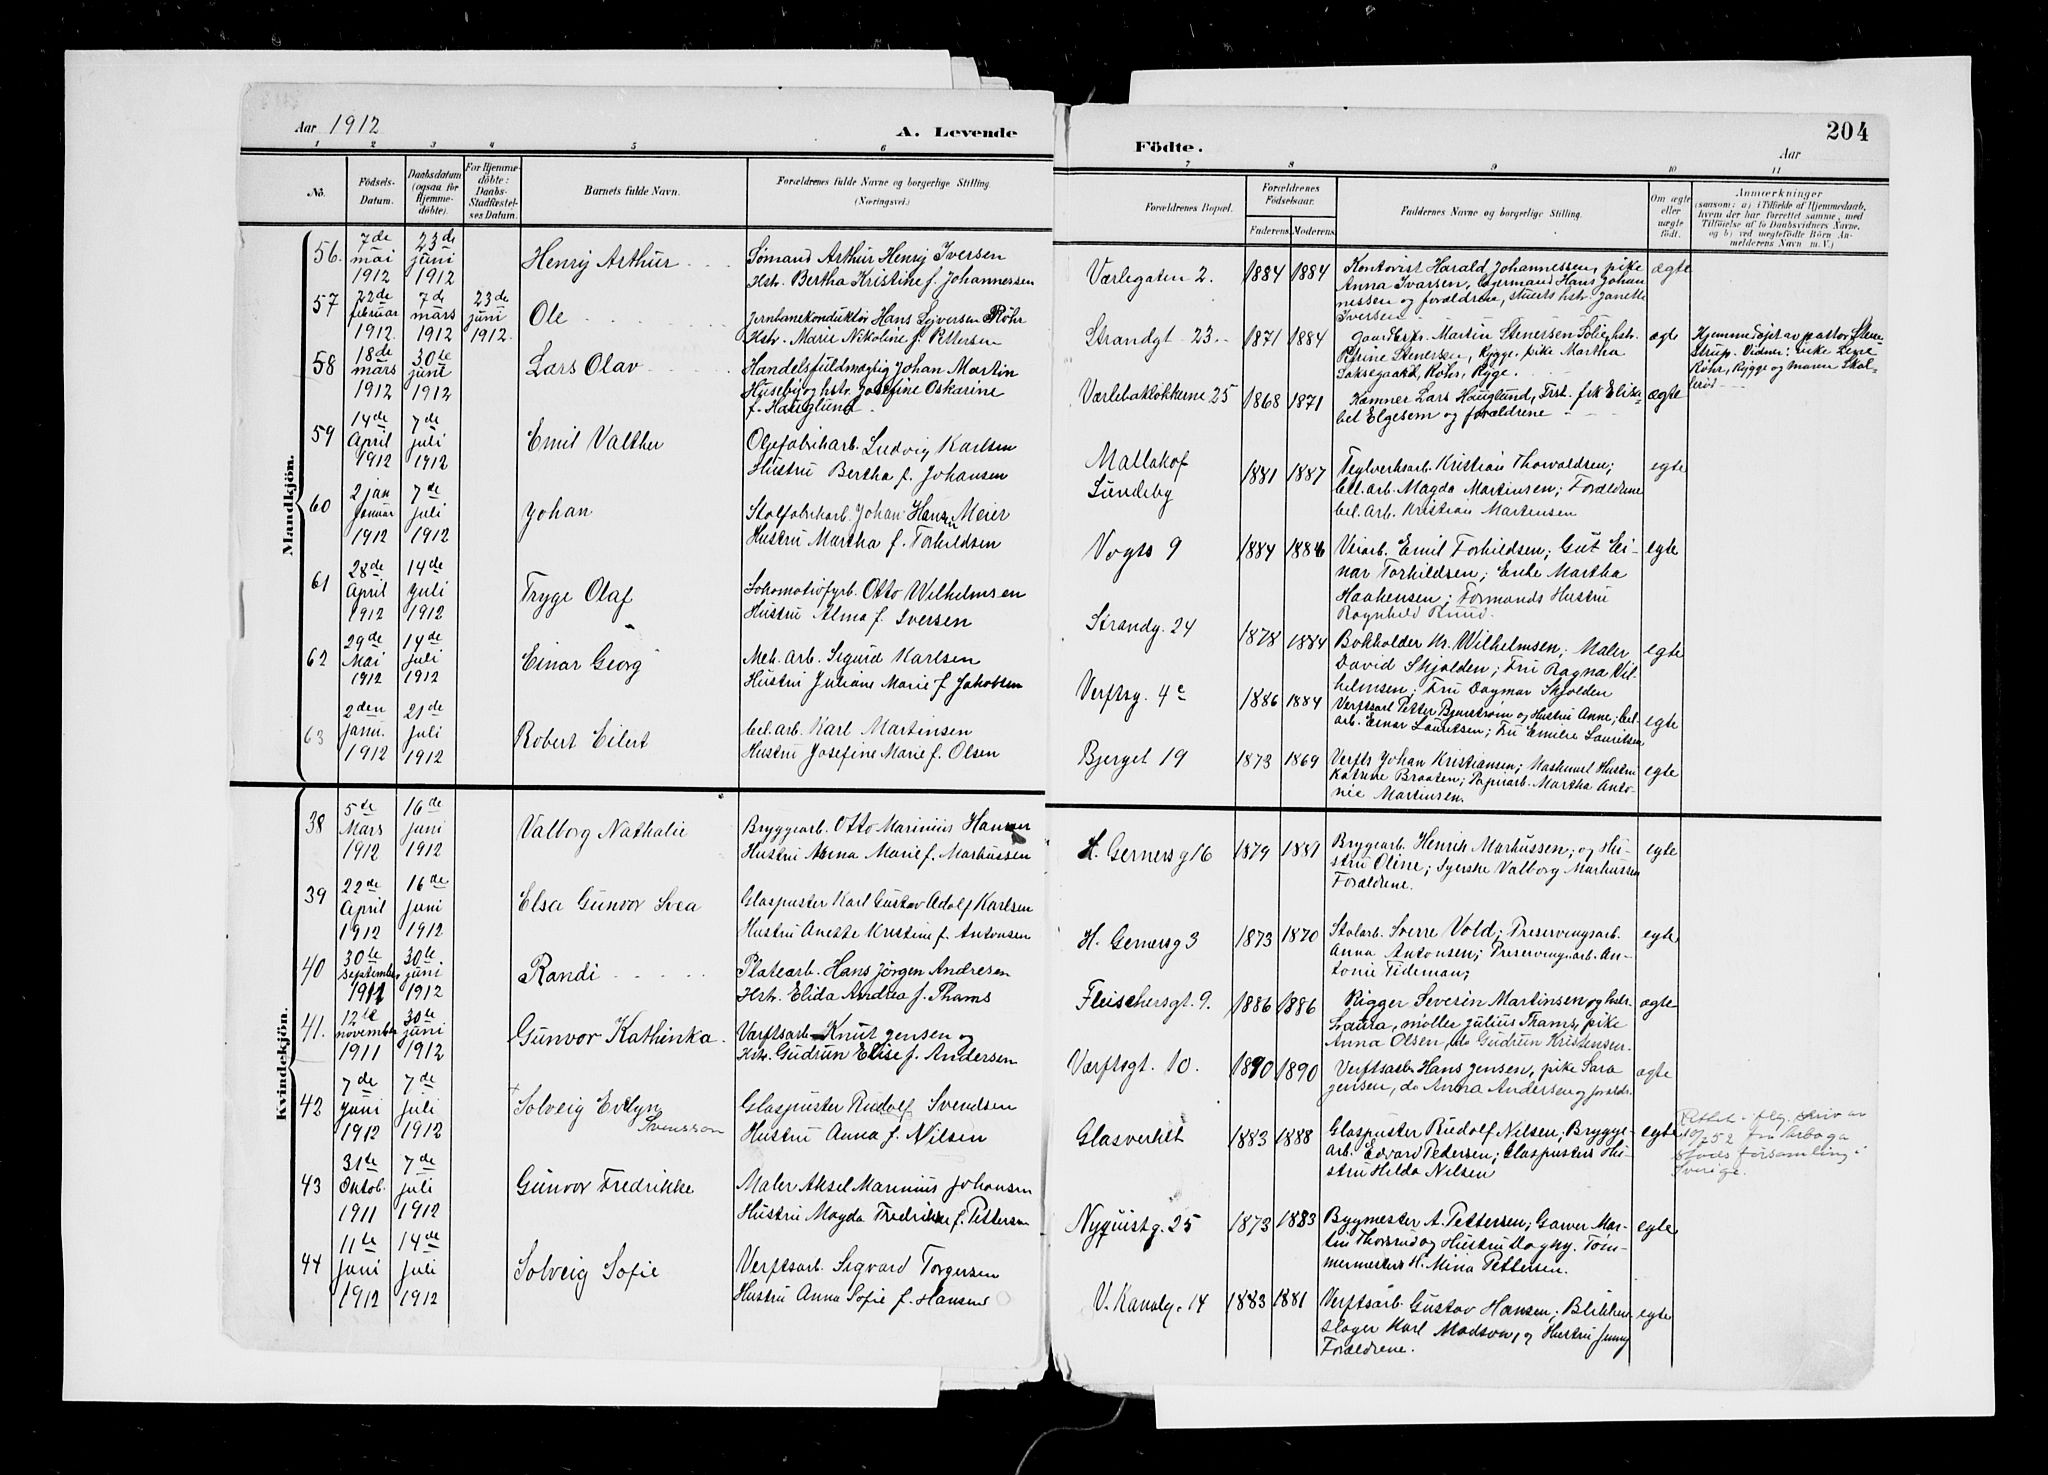 Aar 1912
A. Levende
Födte.
204
Aar
1 2 3 4 5 6
7 8 9 10 11
No.
Födsels-
Datum.
Daabsdatum
(ogsaa for
Hjemme-
döbte).
For Hjemme-
döbte:
Daabs-
Stadfæstel-
ses Datum.
Barnets fulde Navn.
Forældrenes fulde Navne og borgerlige Stilling
(Næringsvei.)
Forældrenes Bopæl.
Forældrenes
Födselsaar.
Faderens. Moderens.
Faddernes Navne og borgerlige Stilling.
Om ægte
eller
uægte
födt.
Anmærkninger
(saasom: a) i Tilfælde af Hjemmedaab,
hvem der har forrettet samme, med
Tilföielse af to Daabsvidners Navne,
og b) ved uægtefödte Börn An-
melderens Navn m. V.)
Mandkjön.
56. 7de mai 1912 23de juni 1912 Henrij Arthur
Sømand Arthur Henrij Iversen
Hstr. Bertha Kristine f. Johannessen
Værlegaten 2. 1884 1884
Kontorist Harald Johannessen, pike
Anna Ivarsen, Hans Johan-
nessen og forældrene, stuerts hstr. Janette
Iversen
ægte
57 22de februar 1912. 7de mars 1912 23de juni 1912. Ole
Jernbanekonduktør Hans Sejversen Röhr
Hstr. Marie Nikoline f. Pettersen
Strandgt 23. 1871 1884
Martin Stenersen hstr.
Petrine Stenersen, Rygge, pike Martha
Röhr, Rygge.
ægte
Hjemmedøpt av pastor Stene-
strup. Vidner: pike Lene
Röhr, Rygge og Maren
58 18de mars 1912 30te juni 1912 Lars Olav
Handelsfuldmægtig Johan Martin
Huseby og hstr. Josefine Oskarine
f. Hauglund.
Værlebakløkkerne 25 1868 1871
Kæmner Lars Hauglund, frk Elisa-
bet Elgesem og forældrene
ægte
59 14de April 1912 7de juli 1912 Emil Valther
Oljefabrikarb. Ludvig Karlsen
Hustru Bertha f. Johansen
Mallakof
Sundeby
1881 1887
Teglverksarb. Kristian Thorvaldsen;
Cel. arb. Magda Martinsen; Forældrene
Cel. Arb. Kristian Martinsen
egte
60 2 jan Januar 1912 7de juli 1912 Johan
Stolfabrikarb. Johan Hansen Meier
Hustru Martha f. Torhildsen
Vogts 9 1884 1886
Veiarb. Emil Torhildsen; Gut Ei-
nar Torhildsen; Enke Martha
Haakensen; Formands Hustru
Ragnhild Ruud.
egte
61 28de April 1912 14de Juli 1912 Trygve Olaf
Lokomotivfyrb. Otto Wilhelmsen
Hustru Alma f. Iversen
Strandg. 24 1878 1884
Bokholder Kr. Wilhelmsen; Maler
David Skjolden; Fru Ragna Vil-
helmsen; Fru Dagmar Skjolden
egte
62 29de Mai 1912 14de juli 1912 Einar Georg
Mek. Arb. Sigurd Karlsen
Hustru Juliane Marie f. Jakobsen
Verftsg. 4c 1886 1884
Verftsarb Petter Bjurstrøm og Hustru Anne; Cel.
arb. Einar Lauritsen; Fru Emelie Lauritsen
egte
63 2den janu. 1912 21de juli 1912 Robert Eilert
Cel. arb. Karl Martinsen
Hustru Josefine Marie f. Olsen
Bjerget 19 1873 1869
Verfts Johan Kristiansen; Hustru
Katrine Braaten; Papirarb. Martha Anto-
nie Martinsen.
egte
Kvindekjön.
38 5te Mars 1912 16de juni 1912 Valborg Nathalie
Bryggearb. Otto Marinius Hansen
Hustru Anna Marie f. Markussen
H. Gernersg 16 1879 1881
Brygearb. Henrik Markussen; og Hu-
stru Oline; Syerske Valborg Markussen
Forældrene.
egte
39 22de April 1912 16de juni 1912 Elsa Gunvor Svea
Glaspuster Karl Gustav Adolf Karlsen
Hustru Anette Kristine f. Antonsen
H. Gernersg 3 1873 1870
Stolarb. Sverre Vold; Preserveingsarb.
Anna Antonsen; Preserving.arb. An-
tonie Tideman;
egte
40 30te september 1911 30te. juni 1912 Randi
Platearb. Hans Jørgen Andresen
Hstr. Elida Andrea f. Thams
Fleischersgt. 9. 1886 1886
Rigger Severin Martinsen og hstr.
Laura, møller Julius Thams, pike
Anna Olsen, do Gudrun Kristensen.
ægte
41. 12te november 1911 30te juni 1912 Gunvor Kathinka.
Værftsarb. Knut Jensen og
Hstr. Gudrun Elise f. Andersen
Værftsgt. 10. 1890 1890
Verftsarb Hans Jensen, pike Sara
Jensen, do Anna Andersen og forældr.
ægte
42 7de Juni 1912 7de juli 1912 Solveig Evelyn
Svensson
Glaspuster Rudolf Svendsen
Hustru Anna f. Nilsen
Glasverket 1883 1888
Glaspuster Rudolf Nilsen; Brygge-
arb. Edvard Pedersen; Glaspusters Hu-
stru Hilda Nilsen
egte
Rettet i flg. skriv av
10/7 52 fra Arboga
Stads församling i
Sverige.
43 31te Oktob. 1911 7de juli 1912 Gunvor Fredrikke
Maler Aksel Marinius Johansen
Hustru Magda Fredrikke f. Pettersen
Nyquistg. 25 1873 1883
Bygmester A. Pettersen; Garver Mar-
tin Thorsrud og Hustru Dagny. Tøm-
mermesters H. Mina Pettersen.
egte
44 11te juni 1912 14de juli 1912 Solveig Sofie
Verftsarb. Sigvard Torgersen
Hustru Anna Sofie f. Hansen
V. Kanalg. 14 1883 1881
Verftsarb. Gustav Hansen; Blikken-
slager Karl Madsen og Hustru Jenny
Forældrene.
egte